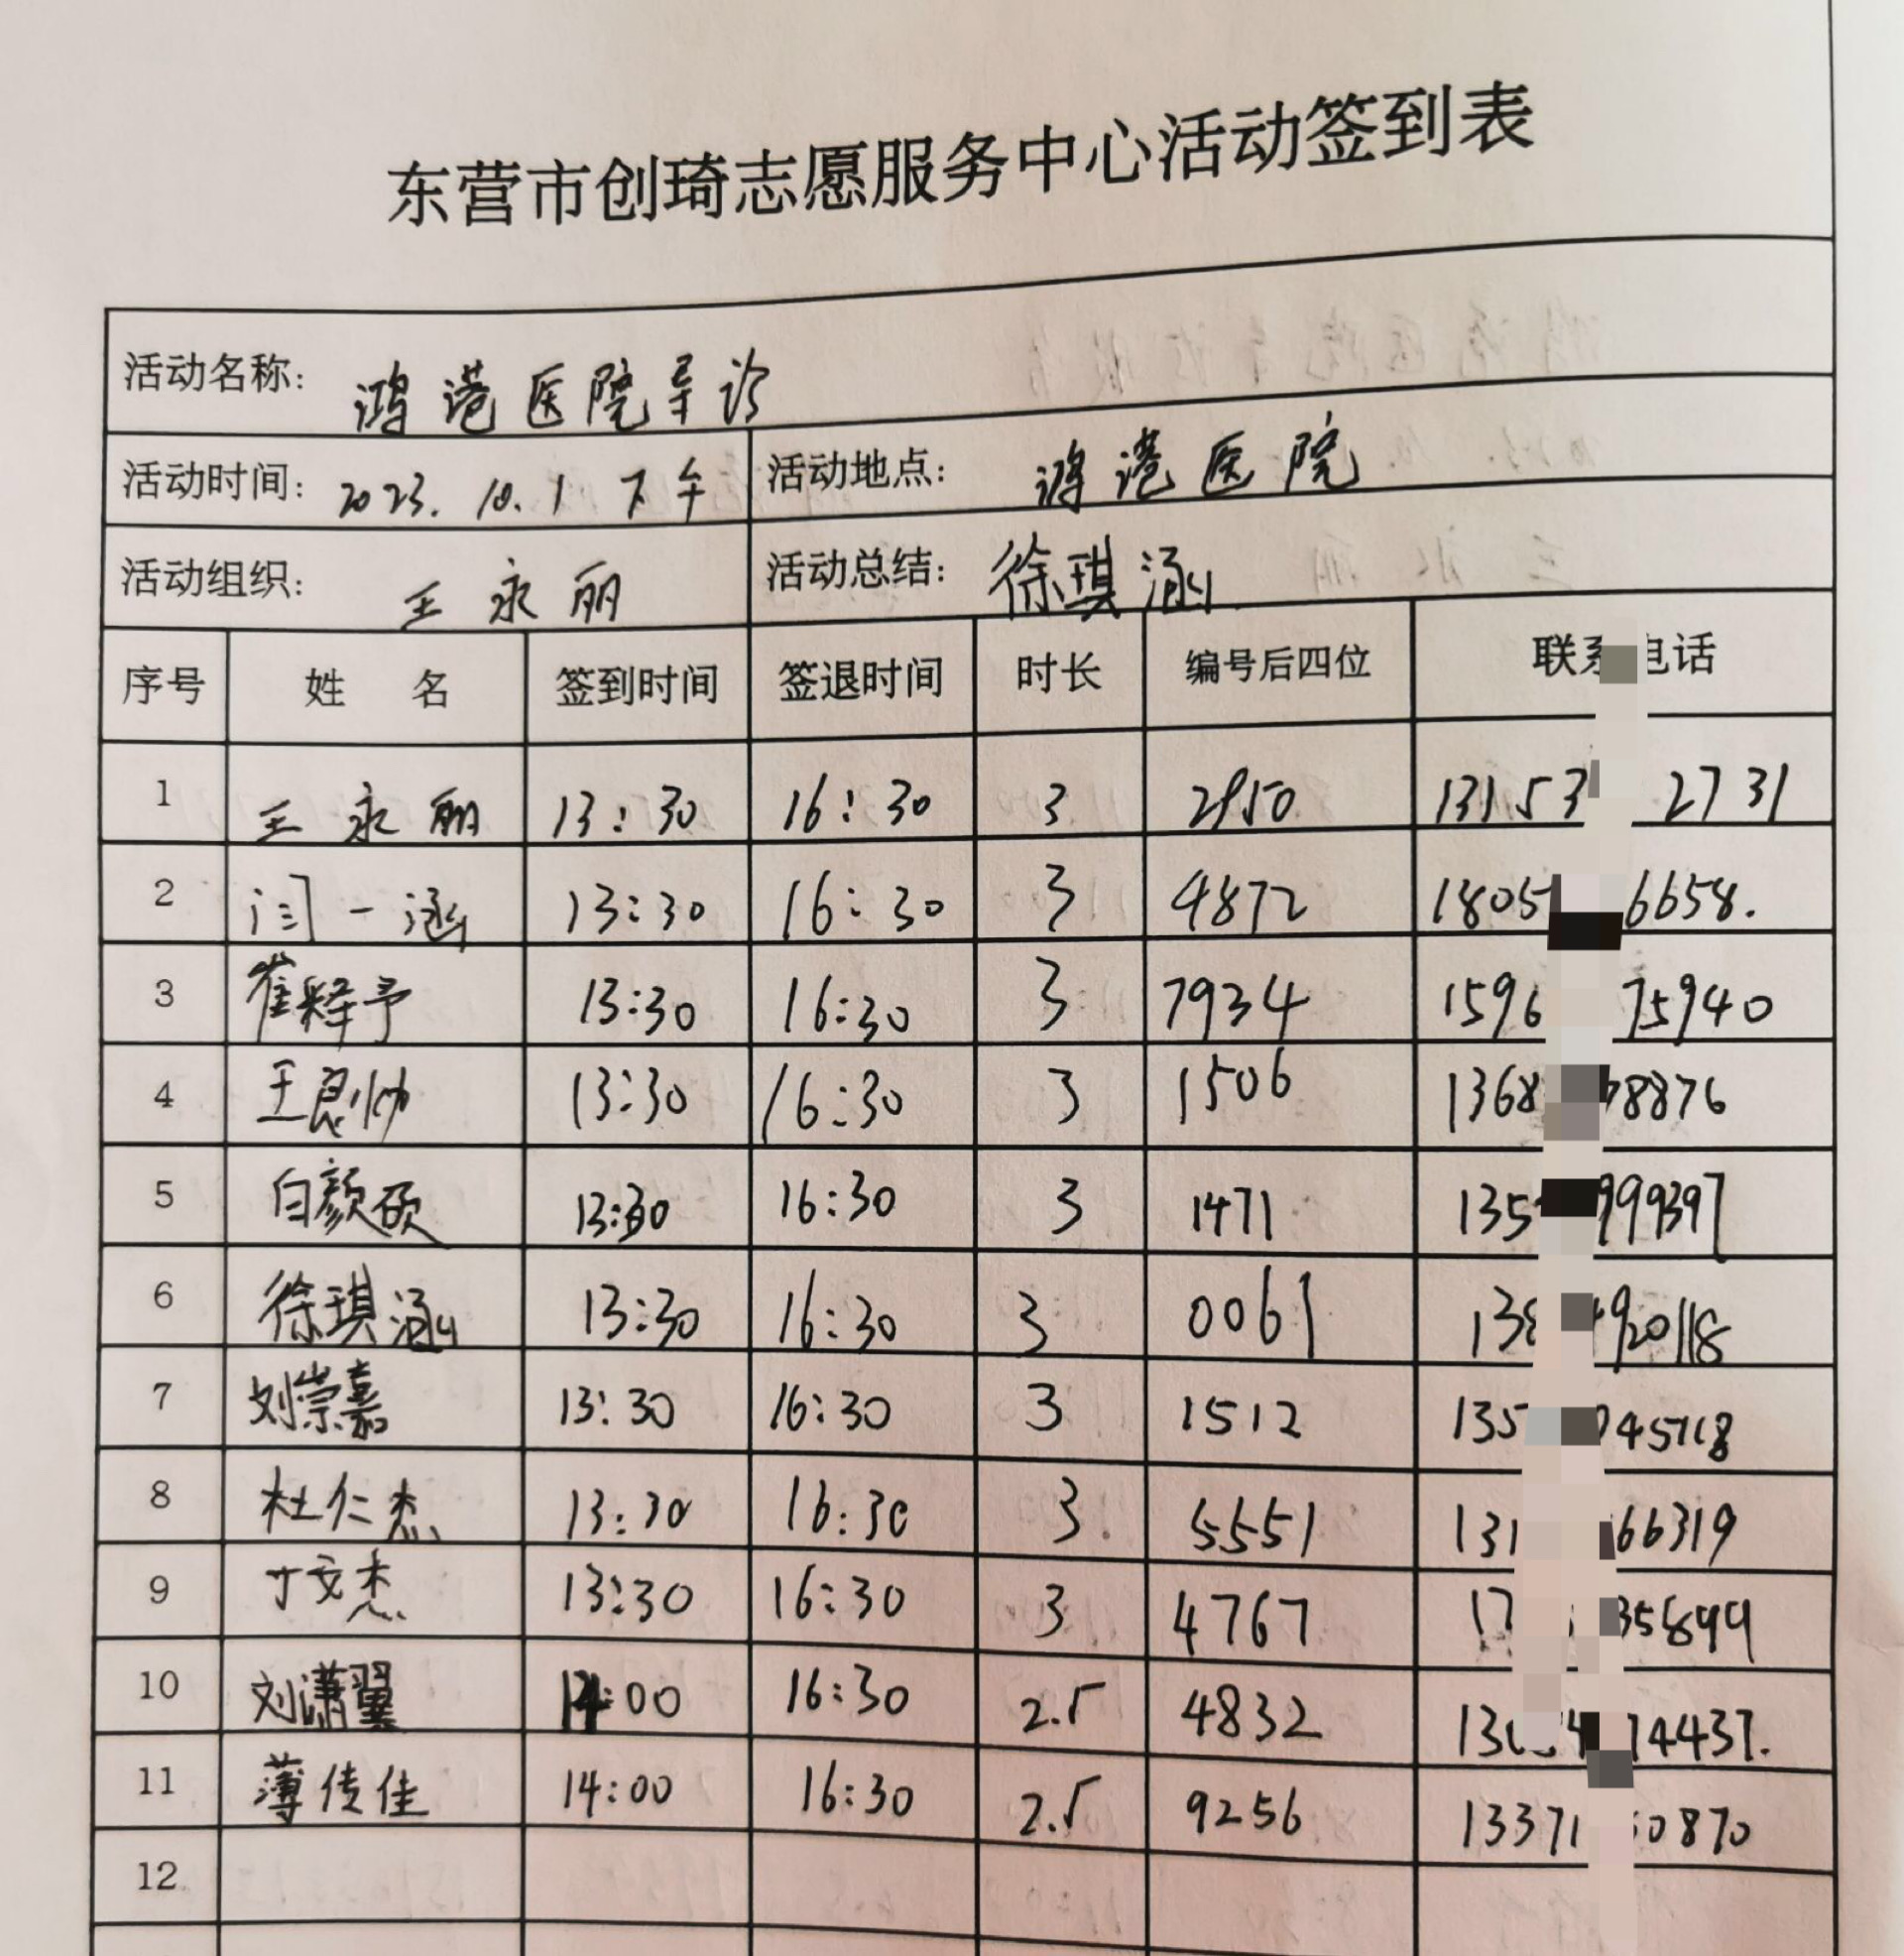 东营市创琦志愿服务中心活动签到表
活动名称: 鸿港医院导诊
活动时间: 2023.10.1 下午 活动地点: 鸿港医院
活动组织: 王永丽 活动总结: 徐琪涵
序号 姓 名 签到时间 签退时间 时长 编号后四位 联系电话
1 王永丽 13:30 16:30 3 2950 13153 2731
2 闫一涵 13:30 16:30 3 4872 1805 6658.
3 崔释予 13:30 16:30 3 7934 1596 75940
4 王良帅 13:30 16:30 3 1506 1368 8876
5 白颜硕 13:30 16:30 3 1471 135 999397
6 徐琪涵 13:30 16:30 3 0061 138 920118
7 刘崇嘉 13:30 16:30 3 1512 135 45718
8 杜仁杰 13:30 16:30 3 5551 131 66319
9 丁文杰 13:30 16:30 3 4767 17 35899
10 刘潇翼 14:00 16:30 2.5 4832 13 14437.
11 薄传佳 14:00 16:30 2.5 9256 13371 0870
12